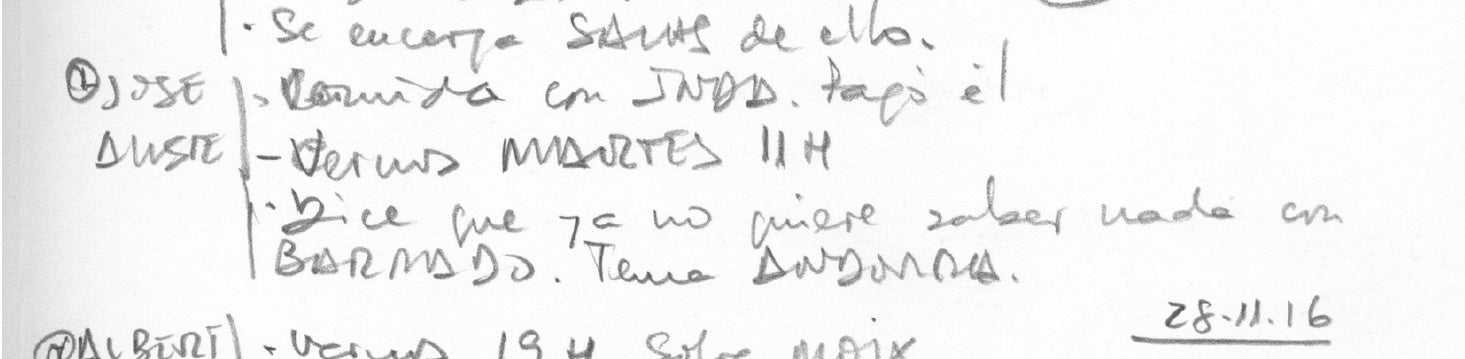 · Se encarga SALAS de ello.
① JOSE · Comida con JNDD. Pagó él
ALISTE - Vernos MARTES 11 H
· Dice que ya no quiere saber nada con
BARNADO. Tema ANDORRA.
28.11.16
② ALBERT · Vernos 19 H Sobre MOIX